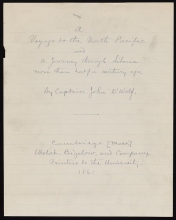 A
Voyage to the North Pacific
and
a Journey through Siberia
more than half a century ago.
By Captain John D'Wolf.
Cambridge [Mass]
Welch, Bigelow, and Company
Printers to the University
1861